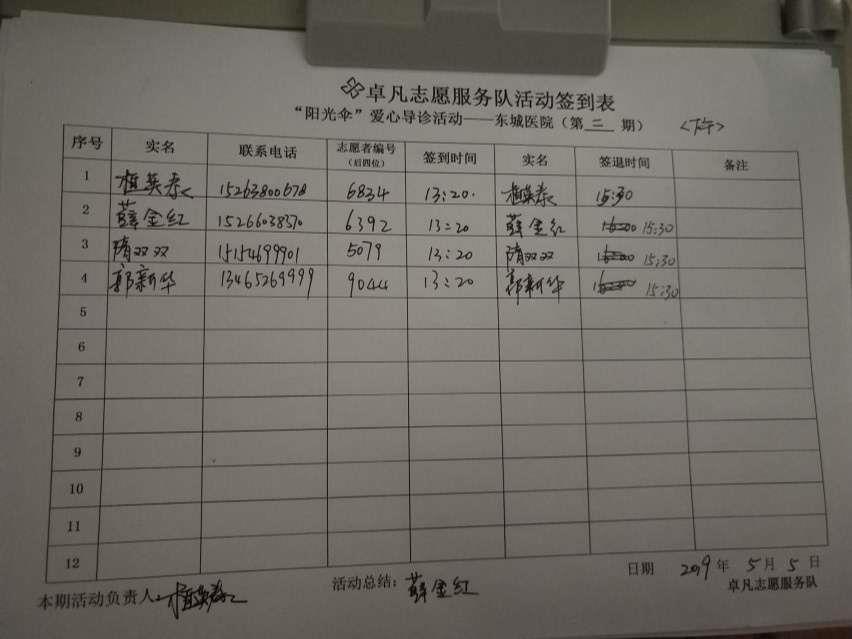 卓凡志愿服务队活动签到表
“阳光伞”爱心导诊活动——东城医院（第 二 期） <下午>
序号 实名 联系电话 志愿者编号（后四位） 签到时间 实名 签退时间 备注
1 植英泰 15263800678 6834 13:20. 植英泰 15:30
2 薛金红 15266038370 6392 13:20 薛金红 15:30
3 隋双双 15154699901 5079 13:20 隋双双 15:30
4 郭新华 13465269999 9044 13:20 郭新华 15:30
5
6
7
8
9
10
11
12
本期活动负责人: 植英泰 活动总结: 薛金红 日期 2019 年 5 月 5 日
卓凡志愿服务队